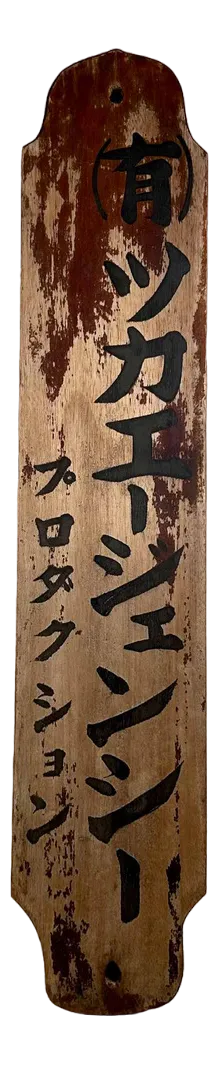 (有)ツカエージェンシー
プロダクション